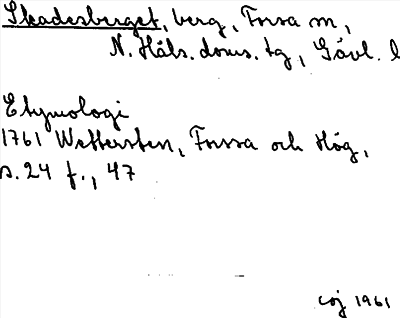 Skadesberget, berg, Forsa sn,
N. Häls. doms. tg, Gävl. l
Etymologi
1761 Wettersten, Forssa och Hög,
s. 24 f., 47
coj 1961